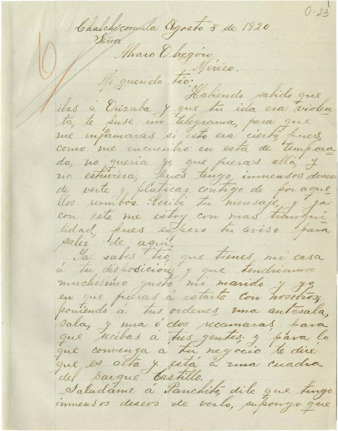 0-23
Chalchicomula Agosto 8 de 1920
Señor
Alvaro Obregón
México.
Mi querido tio:
Habiendo sabido que
ibas a Orizaba y que tu ida era violen-
ta, te puse un telegrama, para que
me informaras si esto era cierto, pues,
como me encuentro en esta de tempora-
da, no queria yo que fueras allá y
no estuviera, pues tengo inmensos deseos
de verte y platicar contigo de por aque-
llos rumbos. Recibi tu mensaje, y ya
con este me estoy con mas tranqui-
lidad, pues espero tu aviso para
salir de aqui.
Ya sabes tio que tienes mi casa
á tu disposición, y que tendriamos
muchisimo gusto mi marido y yo
en que fueras á estarte con nosotros,
poniendo á tus ordenes una antesala,
sala, y una ó dos recamaras para
que recibas a tus gentes, y para lo
que convenga a tu negocio te diré
que es alto y está á una cuadra
del Parque Castillo.
Saludame á Panchito, dile que tengo
inmensos deseos de verlo, supongo que